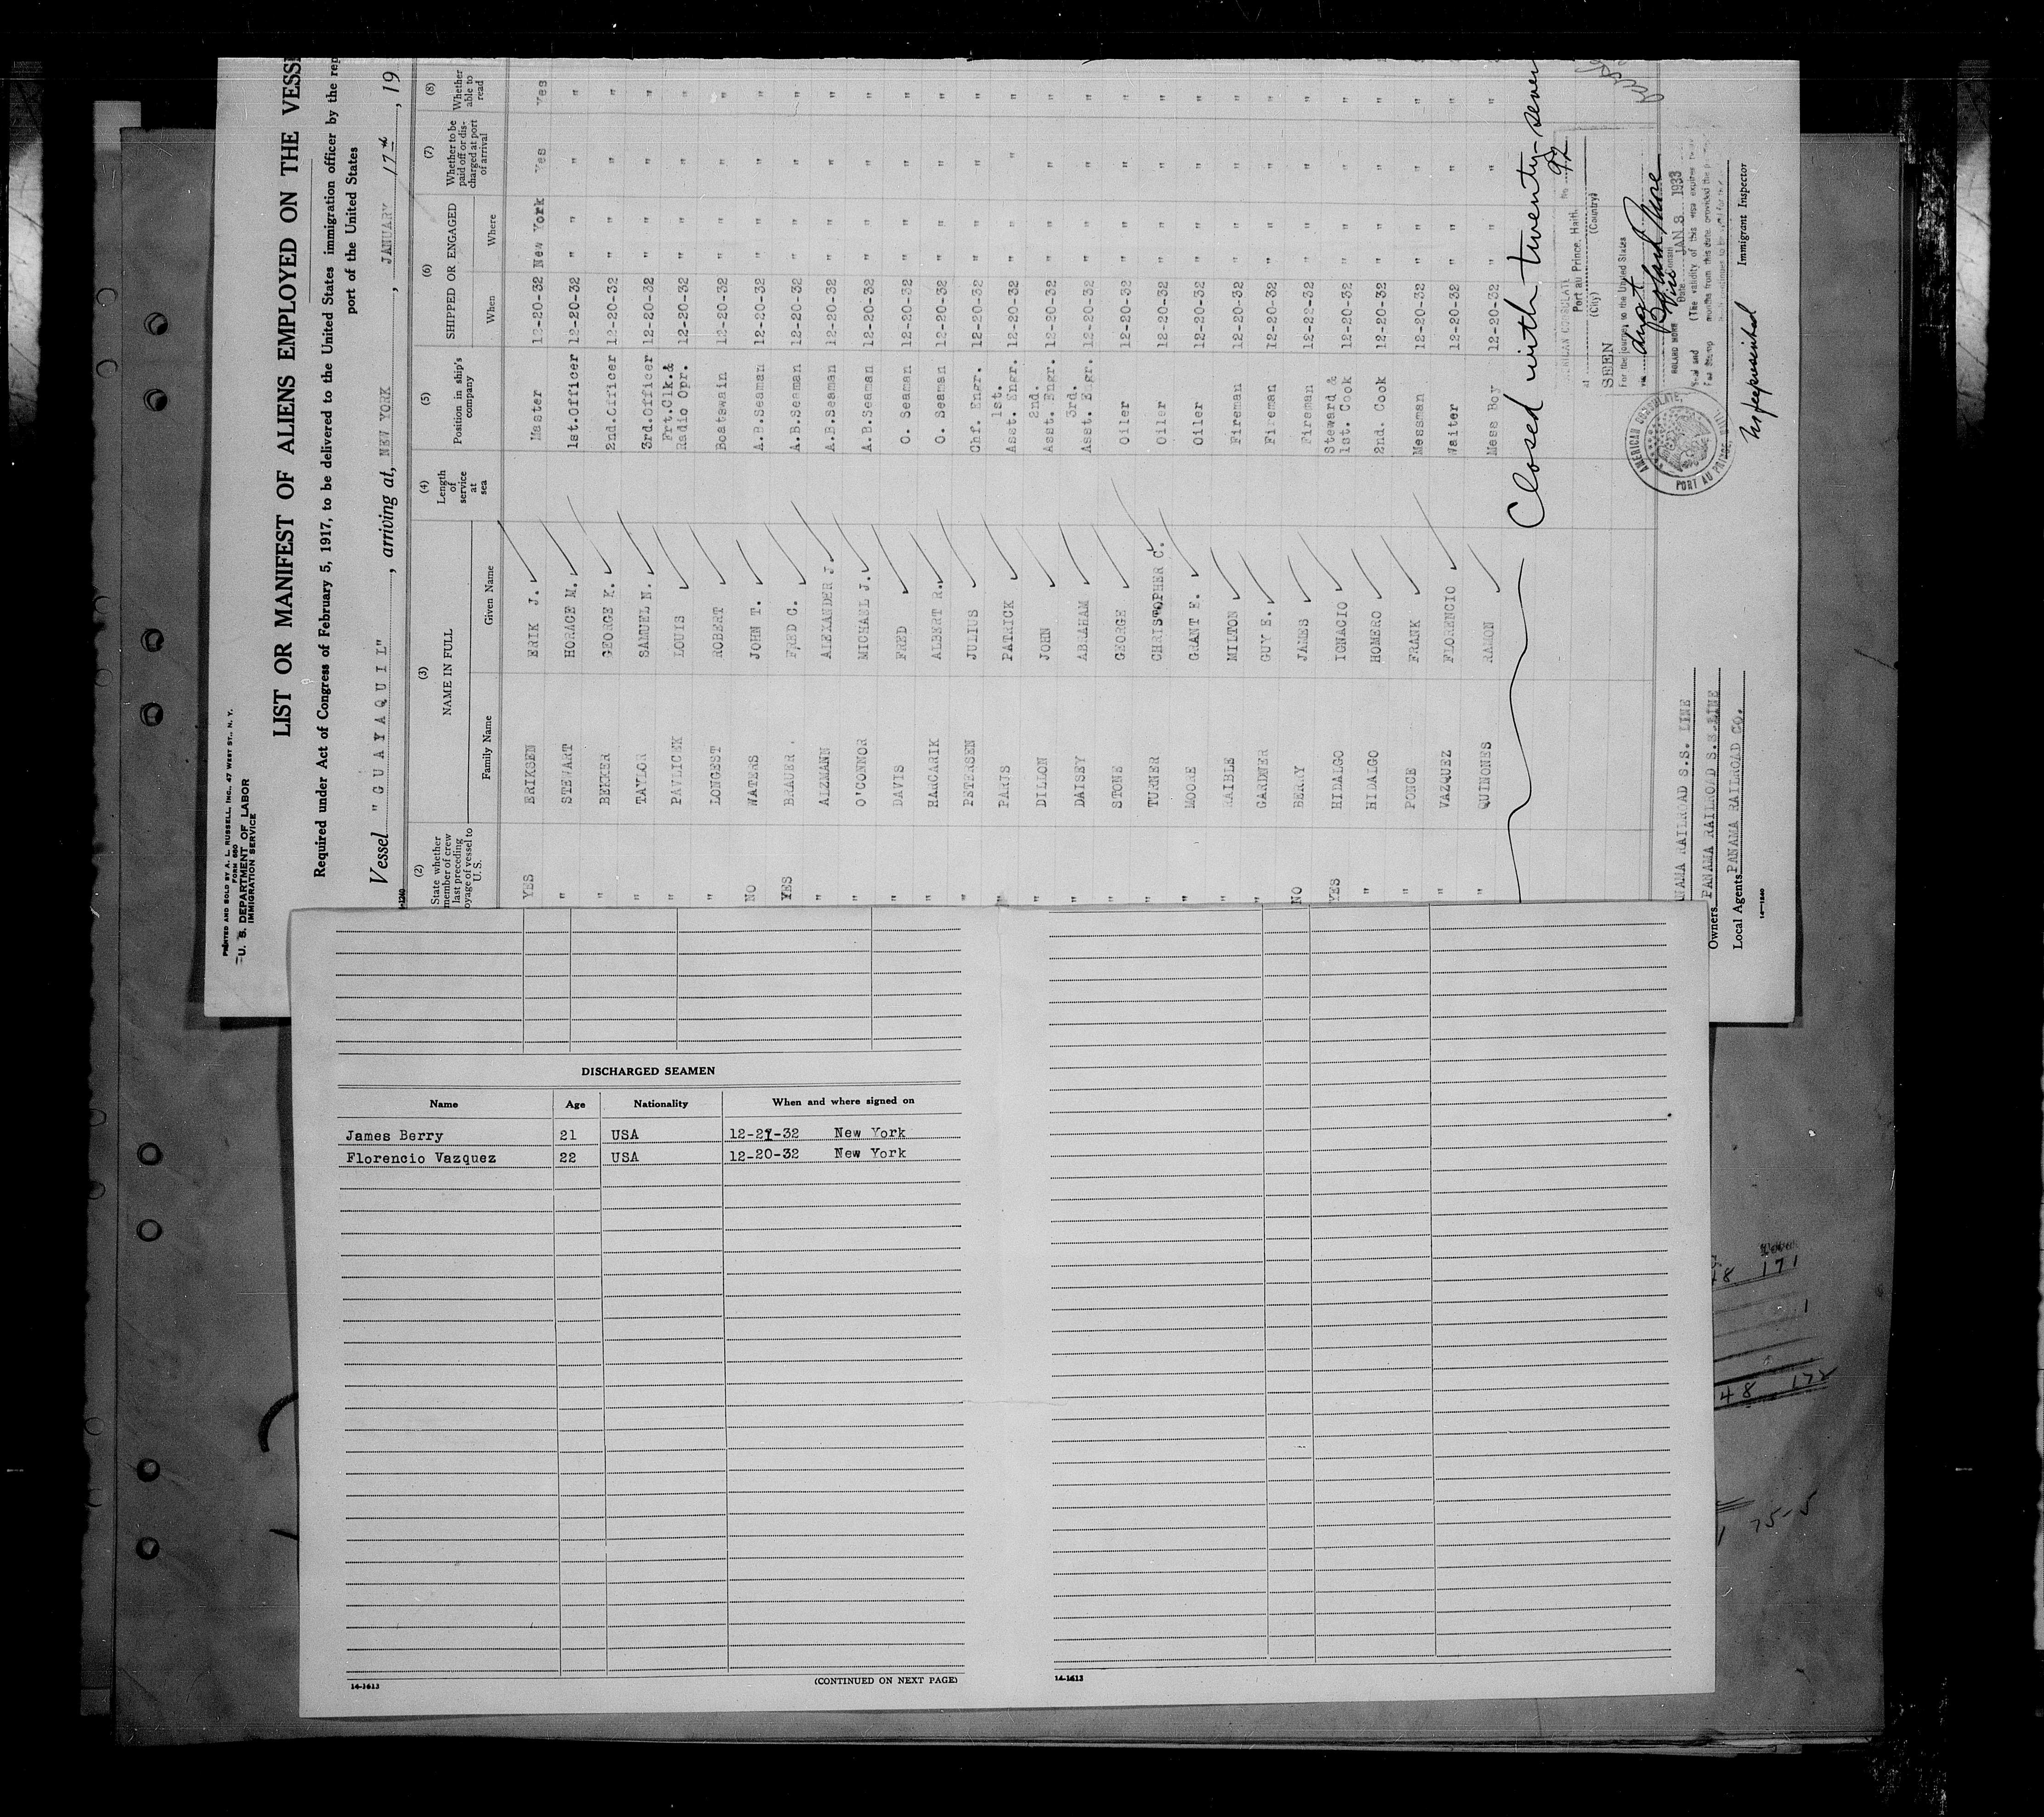 PRINTED AND SOLD BY A. L. RUSSELL, INC., 47 WEST ST., N. Y.
FORM 680
U. S. DEPARTMENT OF LABOR
IMMIGRATION SERVICE
LIST OR MANIFEST OF ALIENS EMPLOYED ON THE VESS
Required under Act of Congress of February 5, 1917, to be delivered to the United States immigration officer by the rep
port of the United States
Vessel "GUAYAQUIL", arriving at, NEW YORK, JANUARY 17th, 19
(2) State whether member of crew last preceding voyage of vessel to U. S.
(3) NAME IN FULL
Family Name Given Name
(4) Length of service at sea
(5) Position in ship's company
(6) SHIPPED OR ENGAGED
When Where
(7) Whether to be paid off or discharged at port of arrival
(8) Whether able to read
YES ERIKSEN ERIK J. Master 12-20-32 New York Yes Yes
" STEWART HORACE M. 1st.Officer 12-20-32 " " "
" BECKER GEORGE K. 2nd.Officer 12-20-32 " " "
" TAYLOR SAMUEL N. 3rd.Officer 12-20-32 " " "
" PAVLICEK LOUIS Frt.Clk.& Radio Opr. 12-20-32 " " "
" LONGEST ROBERT Boatswain 12-20-32 " " "
NO WATERS JOHN T. A.B.Seaman 12-20-32 " " "
YES BRAUER FRED C. A.B.Seaman 12-20-32 " " "
" ALZMANN ALEXANDER J. A.B.Seaman 12-20-32 " " "
" O'CONNOR MICHAEL J. A.B.Seaman 12-20-32 " " "
" DAVIS FRED O. Seaman 12-20-32 " " "
" HARCARIK ALBERT R. O. Seaman 12-20-32 " " "
" PETERSEN JULIUS Chf. Engr. 12-20-32 " " "
" PARIS PATRICK 1st. Asst. Engr. 12-20-32 " " "
" DILLON JOHN 2nd. Asst. Engr. 12-20-32 " " "
" DAISEY ABRAHAM 3rd. Asst. Engr. 12-20-32 " " "
" STONE GEORGE Oiler 12-20-32 " " "
" TURNER CHRISTOPHER C. Oiler 12-20-32 " " "
" MOORE GRANT E. Oiler 12-20-32 " " "
" RAIBLE MILTON Fireman 12-20-32 " " "
" GARDNER GUY E. Fireman 12-20-32 " " "
NO BERRY JAMES Fireman 12-22-32 " " "
YES HIDALGO IGNACIO Steward & 1st. Cook 12-20-32 " " "
" HIDALGO HOMERO 2nd. Cook 12-20-32 " " "
" PONCE FRANK Messman 12-20-32 " " "
" VAZQUEZ FLORENCIO Waiter 12-20-32 " " "
" QUINONES RAMON Mess Boy 12-20-32 " " "
Closed with twenty-seven
AMERICAN CONSULATE No 92
at Port au Prince, Haiti
(City) (Country)
SEEN
For the journey to the United States
Vice Consul
Date JAN 8 1933
(The validity of this visa expires
months from this date, provided the
Seal and
Fee Stamp
AMERICAN CONSULATE
PORT AU PRINCE, HAITI
Immigrant Inspector
NAMA RAILROAD S.S. LINE
Owners PANAMA RAILROAD S.S. LINE
Local Agents PANAMA RAILROAD CO.
14-1240
DISCHARGED SEAMEN
Name Age Nationality When and where signed on
James Berry 21 USA 12-21-32 New York
Florencio Vazquez 22 USA 12-20-32 New York
(CONTINUED ON NEXT PAGE)
14-1613
14-1613
48 171
1
48 172
75-5